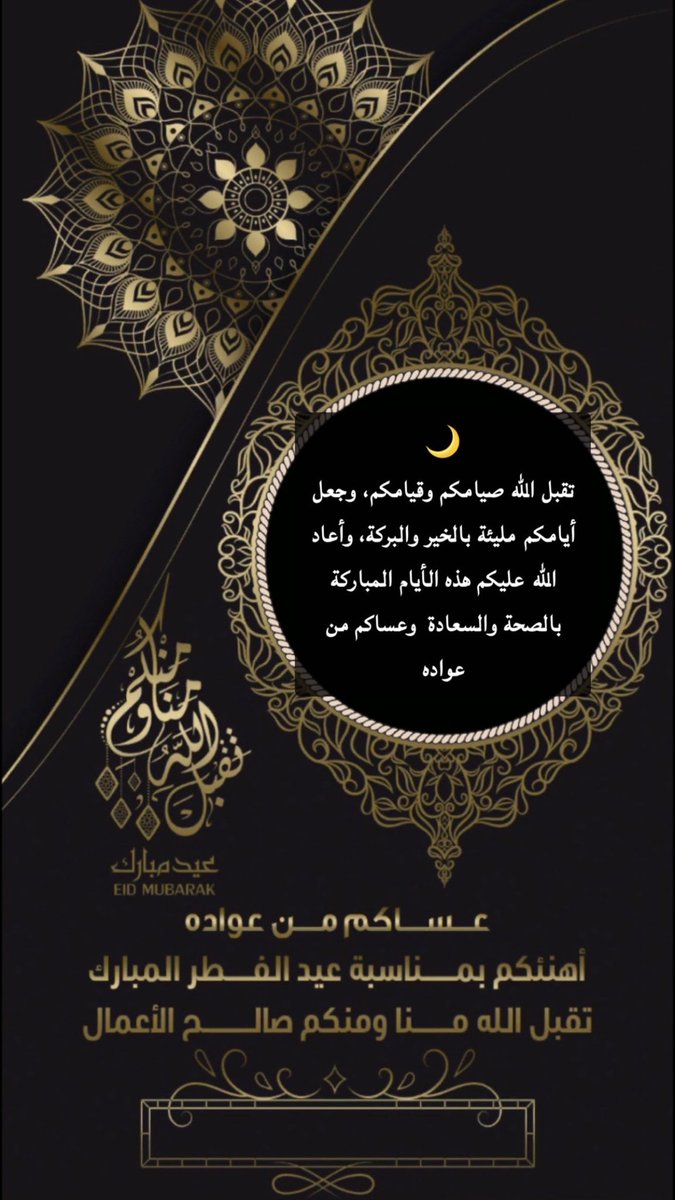 🌙
تقبل الله صيامكم وقيامكم، وجعل
أيامكم مليئة بالخير والبركة، وأعاد
الله عليكم هذه الأيام المباركة
بالصحة والسعادة وعساكم من
عواده
تقبل الله منا ومنكم
عيد مبارك
EID MUBARAK
عساكم من عواده
أهنئكم بمناسبة عيد الفطر المبارك
تقبل الله منا ومنكم صالح الأعمال